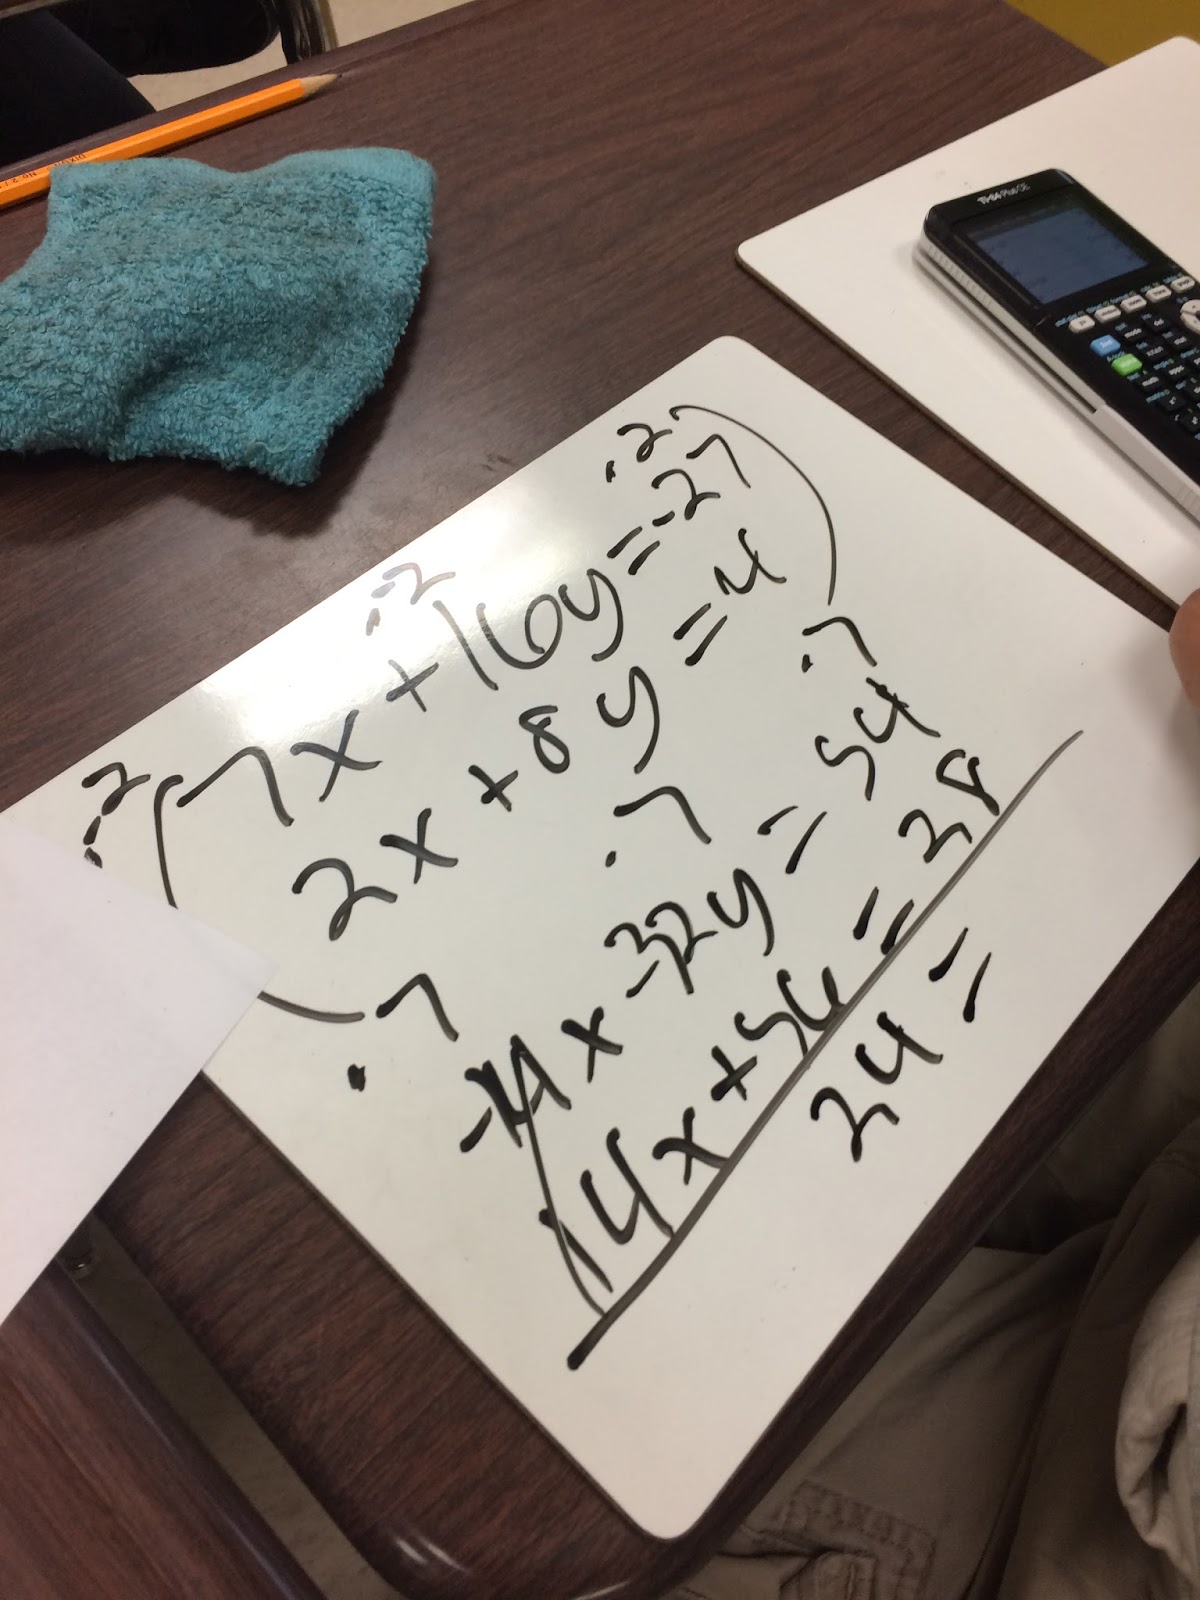 ·-2 ·-2 ·-2
(7x+16y=-27)
2x+8y=4
·7 ·7 ·7
-14x-32y=54
14x+56=28
24=
TI-84 Plus CE